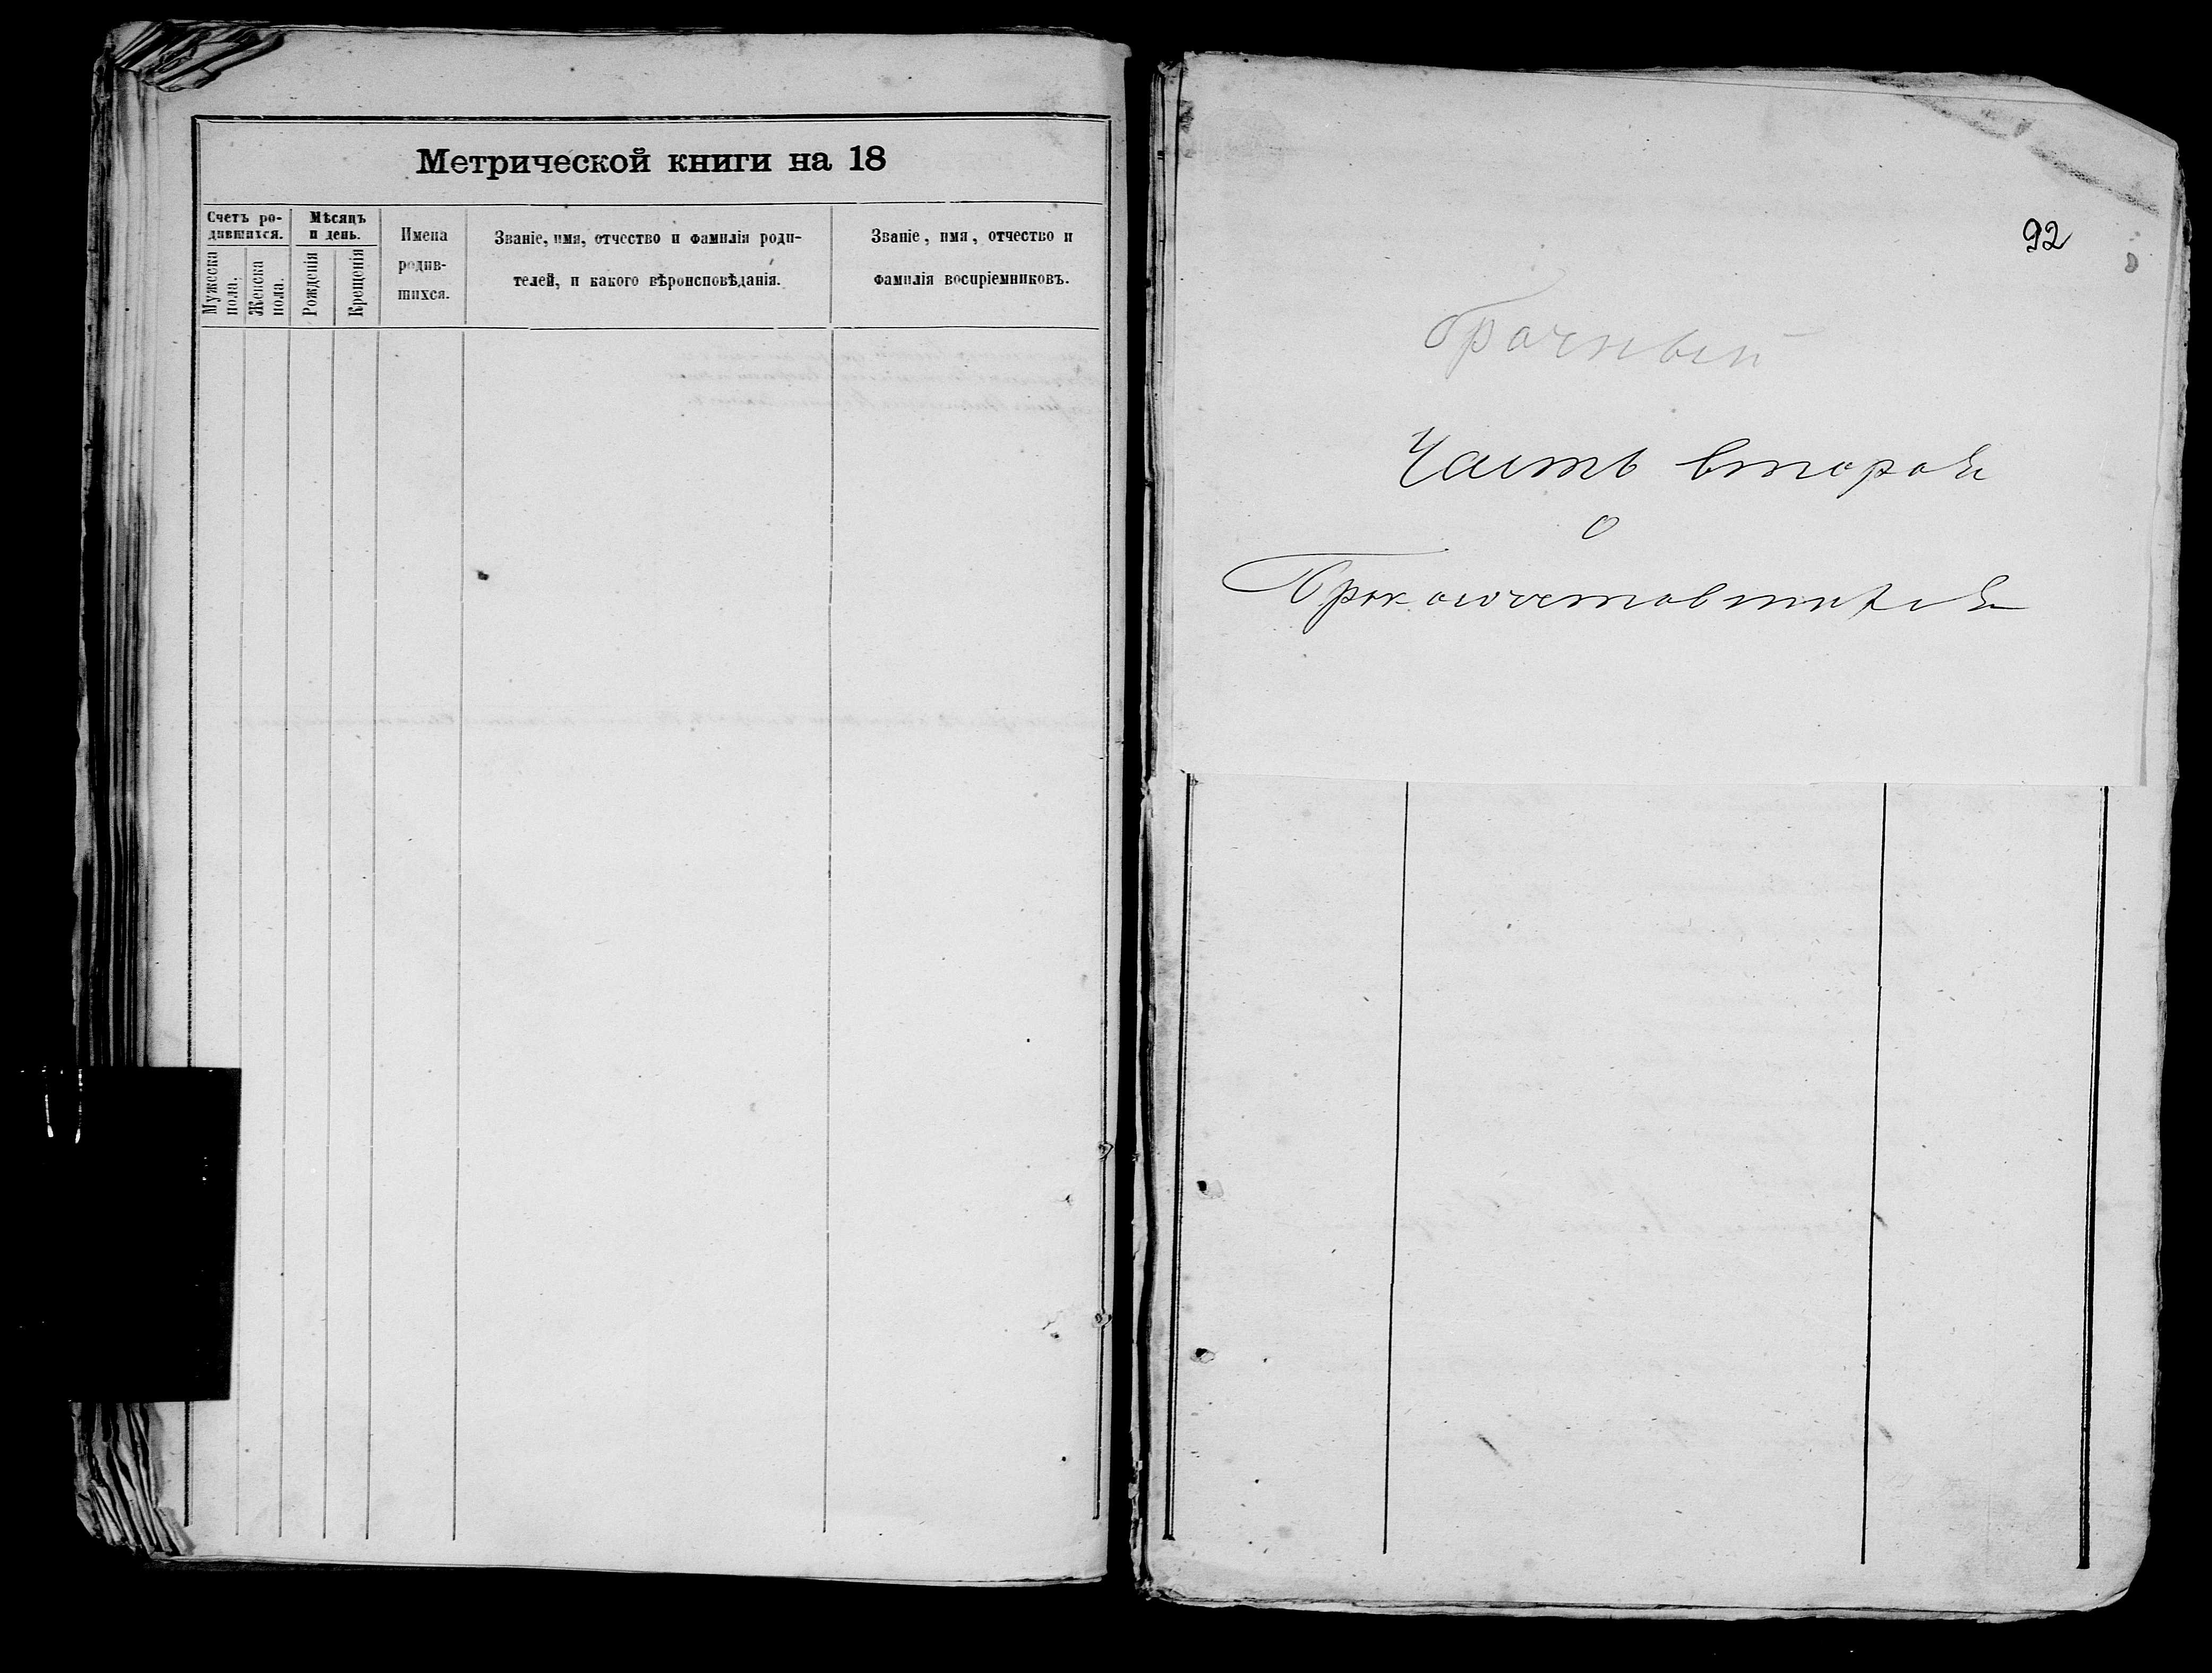 Метрической книги на 18
Счетъ ро-
дившихся.
Мѣсяцъ
и день.
Мужеска
пола.
Женска
пола.
Рожденія
Крещенія
Имена
родив-
шихся.
Званіе, имя, отчество и фамилія роди-
телей, и какого вѣроисповѣданія.
Званіе, имя, отчество и
фамилія воспріемниковъ.
92
Брачный
Часть вторая
о
Бракосочетавшихся